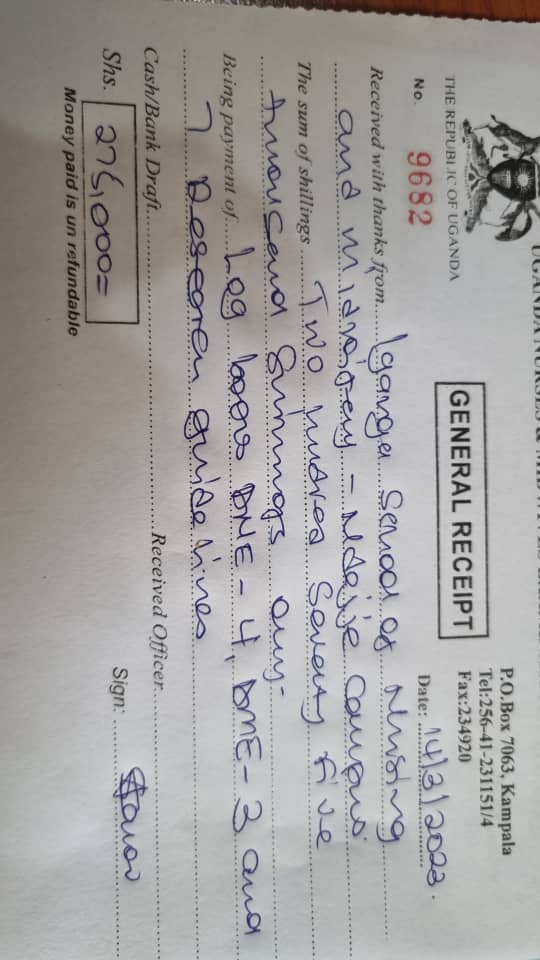 UGANDA NURSES & MIDWI
P.O.Box 7063, Kampala
Tel:256-41-231151/4
Fax:234920
THE REPUBLIC OF UGANDA
GENERAL RECEIPT
No. 9682
Date: 14/3/2023.
Received with thanks from Iganga School of Nursing
and Midwifery - Ndejje Campus.
The sum of shillings Two hundred Seventy five
thousand shillings only-
Being payment of Log books DNE-4, DME-3 and
7 Research guide lines
Cash/Bank Draft Received Officer
Shs. 275,000= Sign.
Money paid is un refundable